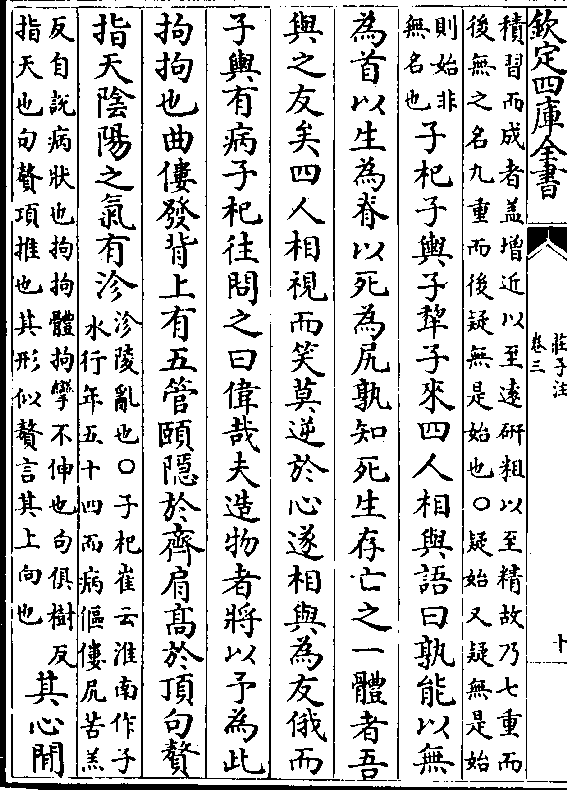 欽定四庫全書
莊子注
卷三
十
積習而成者盖增近以至逺硏粗以至精故乃七重而
後無之名九重而後疑無是始也○疑始又疑無是始
則始非
無名也
子杞子輿子犂子來四人相與語曰孰能以無
為首以生為脊以死為尻孰知死生存亡之一體者吾
與之友矣四人相視而笑莫逆於心遂相與為友俄而
子輿有病子杞往問之曰偉哉夫造物者將以予為此
拘拘也曲僂發背上有五管頤隱於齊肩髙於頂句贅
指天陰陽之氣有沴
沴陵亂也○子杞崔云淮南作子
水行年五十四而病傴僂尻苦羔
反自說病狀也拘拘體拘攣不伸也句俱樹反
指天也句贅項推也其形似贅言其上向也
其心閒